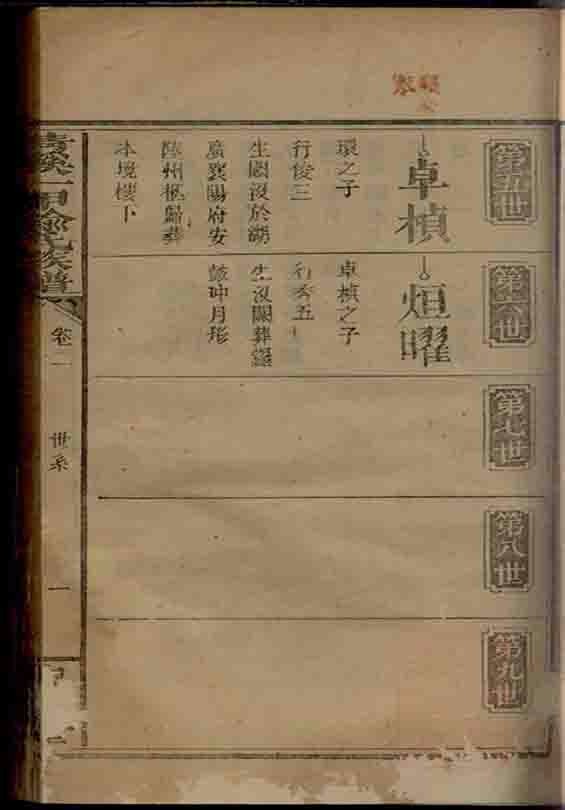 第五世
卓楨
環之子
行俊三
生闕沒於湖
廣襄陽府安
陸州柩歸葬
本境樓下
第六世
烜曜
卓楨之子
行秀五
生沒闕葬譚
鼓冲月形
第七世
第八世
第九世
族譜
卷二
世系
一